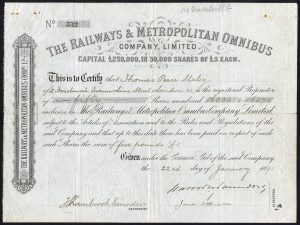 No 332
THE RAILWAYS & METROPOLITAN OMNIBUS
COMPANY, LIMITED.
CAPITAL £250,000, IN 50,000 SHARES OF £5 EACH.
This is to Certify that Thomas
Street London is the registered Proprietor
of fifty Shares numbered 16030 to
inclusive in The Railways & Metropolitan Omnibus Company, Limited,
subject to the Articles of Association and to the Rules and Regulations of the
said Company and that up to this date there has been paid in respect of each
such Share the sum of five pounds
Given under the Common Seal of the said Company,
the 22nd day of January 18
THE RAILWAYS & METROPOLITAN OMNIBUS COMPY LD